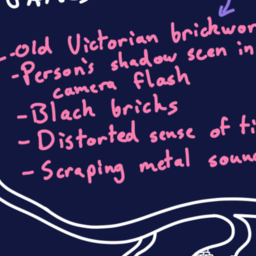 -old Victorian brickwor
-Person's shadow seen in
camera flash
-Black bricks
- Distorted sense of ti
- Scraping metal soun